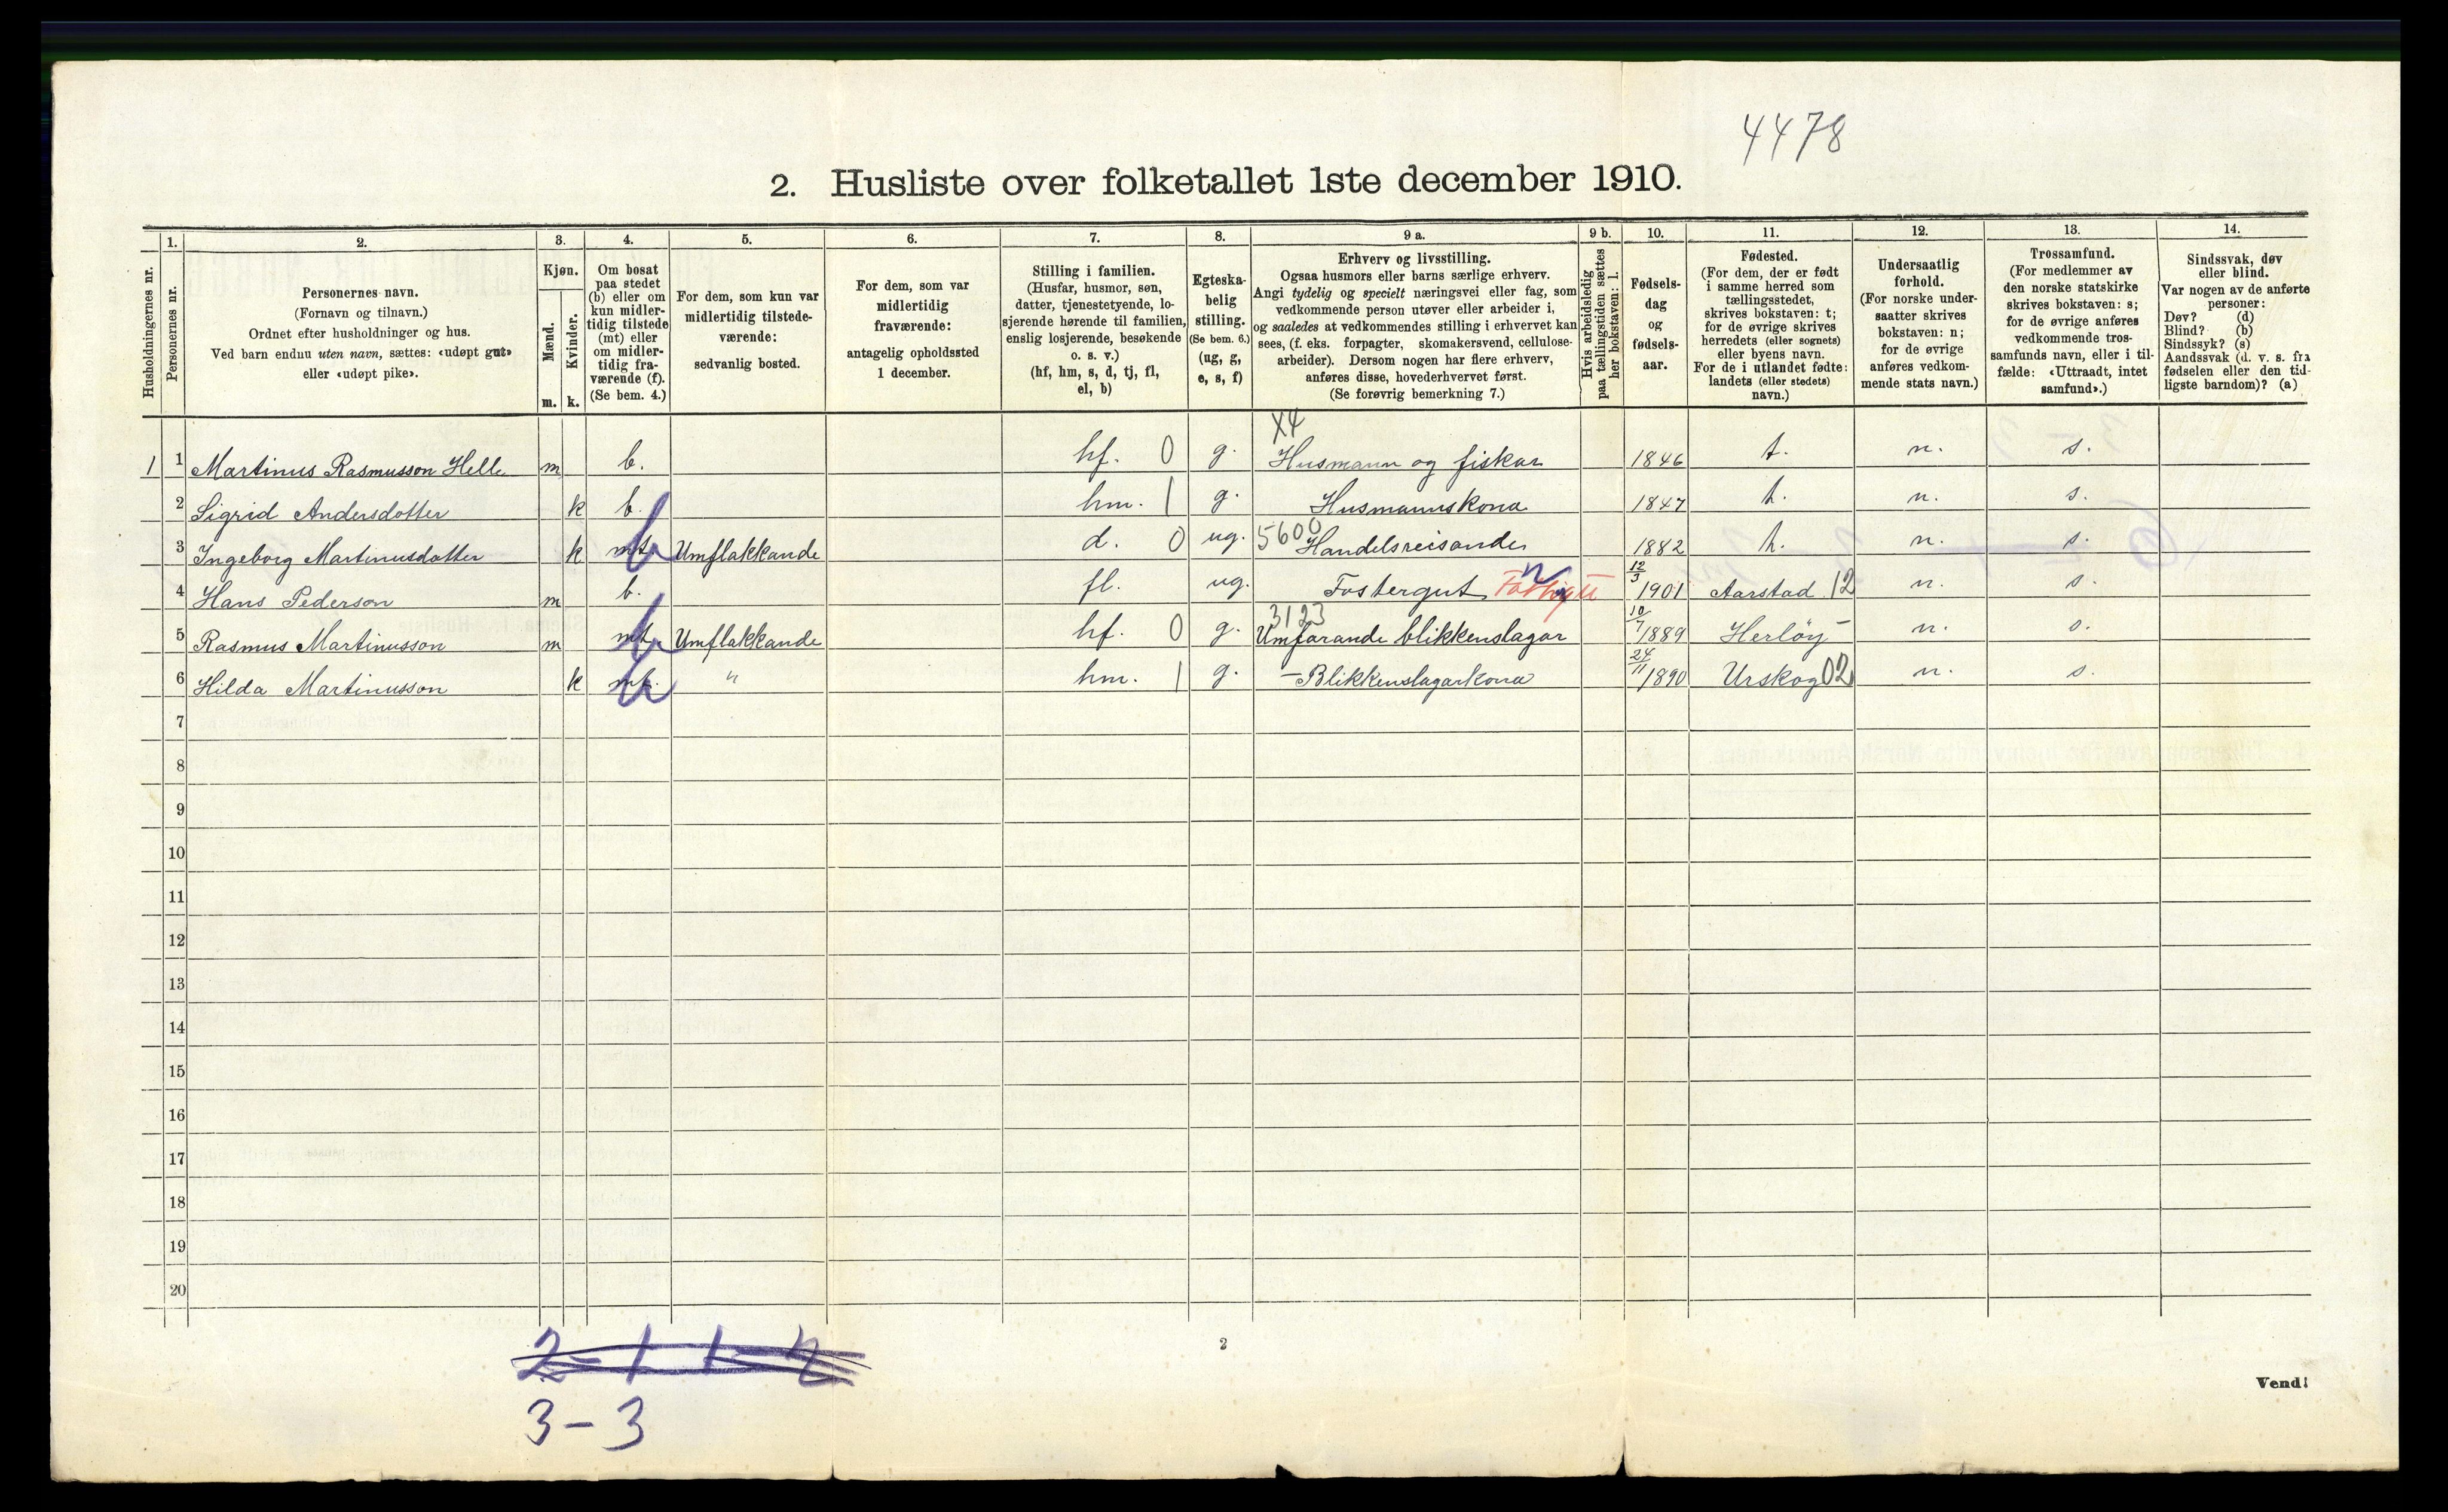 4478
2. Husliste over folketallet 1ste december 1910.
Husholdningernes nr.
1.
Personernes nr.
2.
Personernes navn.
(Fornavn og tilnavn.)
Ordnet efter husholdninger og hus.
Ved barn endnu uten navn, sættes: «udøpt gut»
eller «udøpt pike».
3.
Kjøn.
Mænd.
Kvinder.
m. k.
4.
Om bosat
paa stedet
(b) eller om
kun midler-
tidig tilstede
(mt) eller
om midler-
tidig fra-
værende (f).
(Se bem. 4.)
5.
For dem, som kun var
midlertidig tilstede-
værende:
sedvanlig bosted.
6.
For dem, som var
midlertidig
fraværende:
antagelig opholdssted
1 december.
7.
Stilling i familien.
(Husfar, husmor, søn,
datter, tjenestetyende, lo-
sjerende hørende til familien,
enslig losjerende, besøkende
o. s. v.)
(hf, hm, s, d, tj, fl,
el, b)
8.
Egteska-
belig
stilling.
(Se bem. 6.)
(ug, g,
e, s, f)
9 a.
Erhverv og livsstilling.
Ogsaa husmors eller barns særlige erhverv.
Angi tydelig og specielt næringsvei eller fag, som
vedkommende person utøver eller arbeider i,
og saaledes at vedkommendes stilling i erhvervet kan
sees, (f. eks. forpagter, skomakersvend, cellulose-
arbeider). Dersom nogen har flere erhverv,
anføres disse, hovederhvervet først.
(Se forøvrig bemerkning 7.)
9 b.
Hvis arbeidsledig
paa tællingstiden sættes
her bokstaven: l.
10.
Fødsels-
dag
og
fødsels-
aar.
11.
Fødested.
(For dem, der er født
i samme herred som
tællingsstedet,
skrives bokstaven: t;
for de øvrige skrives
herredets (eller sognets)
eller byens navn.
For de i utlandet fødte:
landets (eller stedets)
navn.)
12.
Undersaatlig
forhold.
(For norske under-
saatter skrives
bokstaven: n;
for de øvrige
anføres vedkom-
mende stats navn.)
13.
Trossamfund.
(For medlemmer av
den norske statskirke
skrives bokstaven: s;
for de øvrige anføres
vedkommende tros-
samfunds navn, eller i til-
fælde: «Uttraadt, intet
samfund».)
14.
Sindssvak, døv
eller blind.
Var nogen av de anførte
personer:
Døv? (d)
Blind? (b)
Sindssyk? (s)
Aandssvak (d. v. s. fra
fødselen eller den tid-
ligste barndom)? (a)
X4
1 1 Martinus Rasmusson Helle m b. hf. 0 g. Husmann og fiskar 1846 t. n. s.
2 Sigrid Andersdotter k b. hm. 1 g. Husmannskona 1847 t. n. s.
3 Ingeborg Martinusdotter k mt. b Umflakkande d. 0 ug. 5600 Handelsreisande 1882 t. n. s.
4 Hans Pederson m b. fl. ug. Fostergut n 12/3 1901 Aarstad 12 n. s.
5 Rasmus Martinusson m mt. b Umflakkande hf. 0 g. 3123 Umfarande blikkenslagar 10/7 1889 Herløy - n. s.
6 Hilda Martinusson k mt. b " hm. 1 g. - Blikkenslagarkona 24/11 1890 Urskog 02 n. s.
7
8
9
10
11
12
13
14
15
16
17
18
19
20
2 - 1 1 - 2
3 - 3
2
Vend!